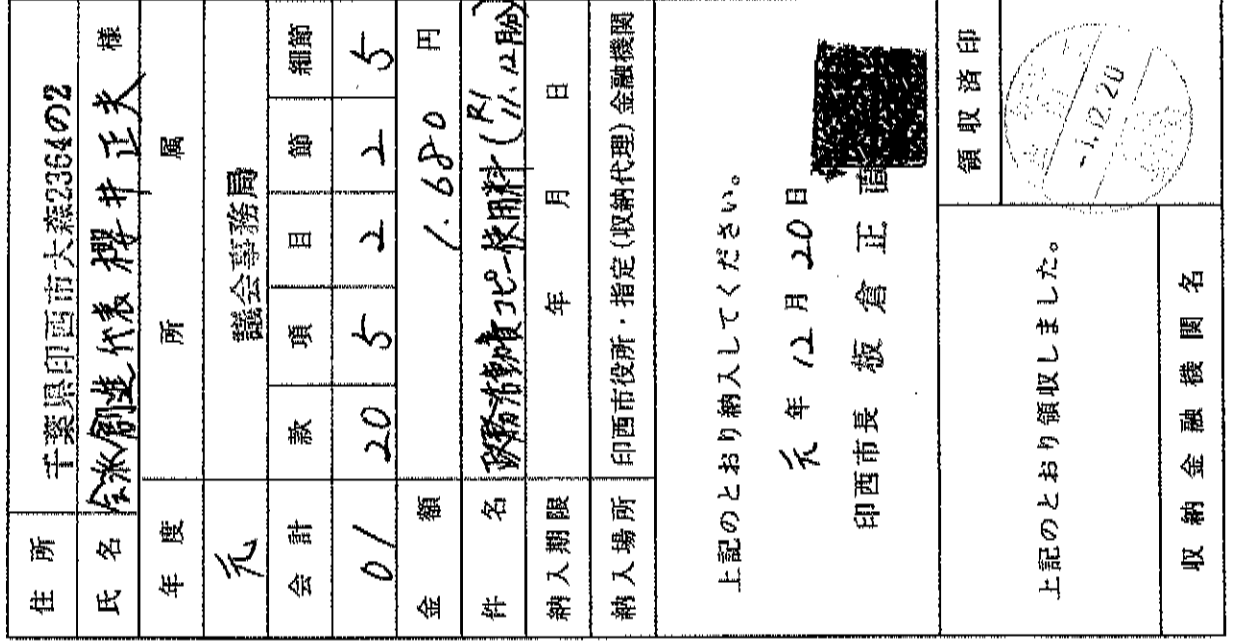 住所 千葉県印西市大森2364の2
氏名 会派創進代表 櫻井正夫 様
年度 所属
元 議会事務局
会計 款 項 目 節 細節
01 20 5 2 2 5
金額 1.680 円
件名 政務活動費コピー使用料(R1 11.12月分)
納入期限 年 月 日
納入場所 印西市役所・指定(収納代理)金融機関
上記のとおり納入してください。
元年12月20日
印西市長 板倉正直
領収済印
-1.12.20
上記のとおり領収しました。
収納金融機関名